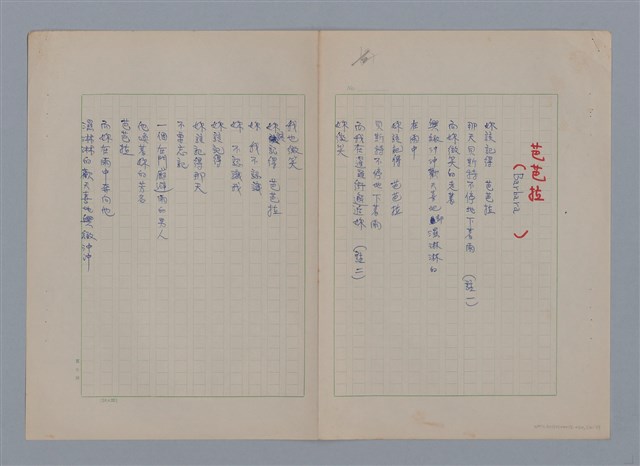 芭芭拉
(Barbara)
妳該記得 芭芭拉
那天貝斯特不停地下著雨 (註一)
而妳微笑的走著
興緻沖沖歡天喜地濕淋淋的
在雨中
妳該記得 芭芭拉
貝斯特不停地下著雨
而我在遑羅街遇近妳 (註二)
妳微笑
我也微笑
妳該記得 芭芭拉
妳 我不認識
妳 不認識我
妳該記得
妳該記得那天
不要忘記
一個在門廊避雨的男人
他喊著妳的芳名
芭芭拉
而妳在雨中奔向他
濕淋淋的歡天喜地興緻沖沖